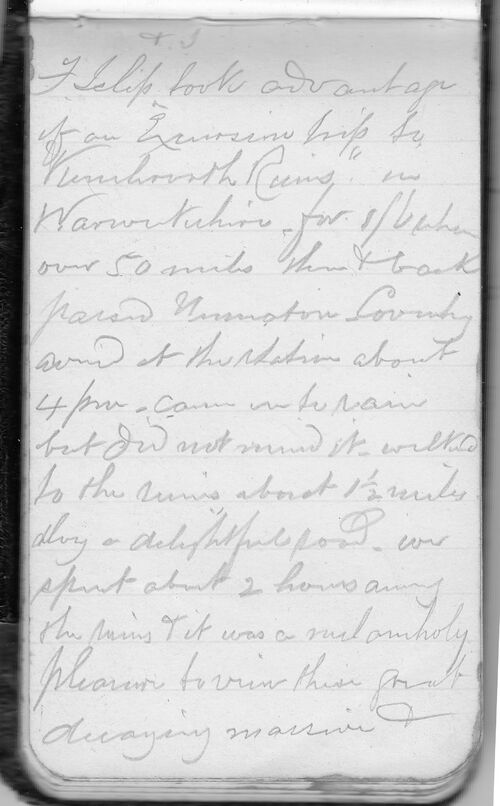 & I
F Islip took advantage
of an "Excursion trip to
Kenilworth Ruins" in
Warwickshire - for 1/6 when
over 50 miles there & back
passed Nuneaton Coventry
arrived at the station about
4 pm - came on to rain
but did not mind it - walked
to the ruins about 1½ miles
along a delightful road - we
spent about 2 hours among
the ruins & it was a melancholy
pleasure to view these great
decaying massive &